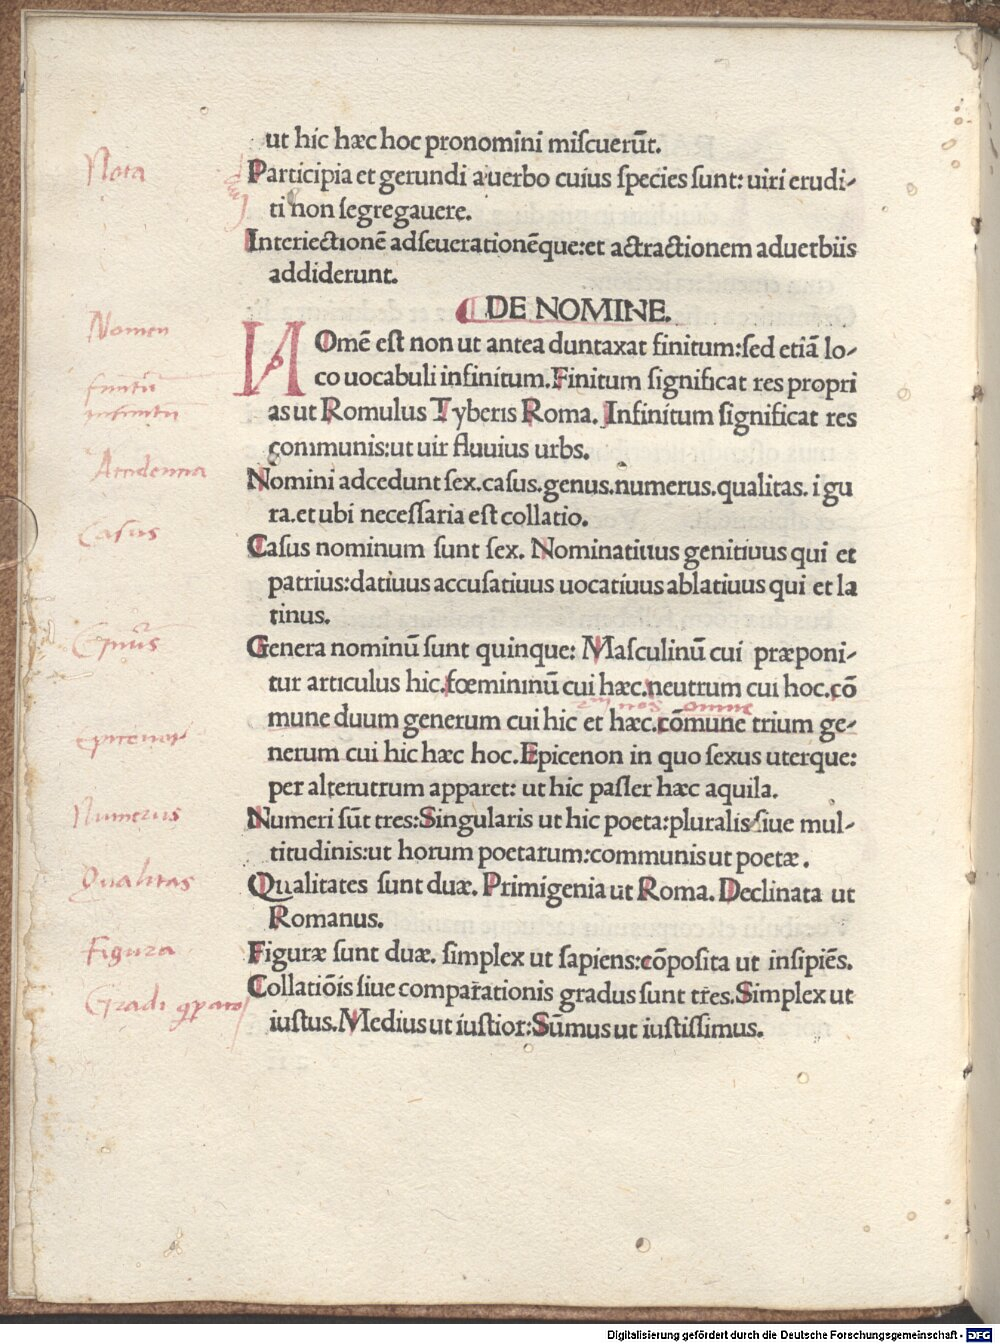 ut hic hæc hoc pronomini miſcuerūt.
Nota
Participia et gerundi a uerbo cuius ſpecies ſunt: uiri erudi-
ti non ſegregauere.
Interiectionē adſeuerationēque: et actractionem aduerbiis
addiderunt.
DE NOMINE.
Nomen
NOmē eſt non ut antea duntaxat finitum: ſed etiā lo-
finitū
co uocabuli infinitum. Finitum ſignificat res propri
infinitū
as ut Romulus Tyberis Roma. Infinitum ſignificat res
communis: ut uir fluuius urbs.
Nomini adcedunt ſex. caſus. genus. numerus. qualitas. i gu
ra. et ubi neceſſaria eſt collatio.
Caſus
Caſus nominum ſunt ſex. Nominatiuus genitiuus qui et
patrius: datiuus accuſatiuus uocatiuus ablatiuus qui et la
tinus.
Genera nominū ſunt quinque: Maſculinū cui præponi-
tur articulus hic. fœmininū cui hæc. neutrum cui hoc. cō
omne
mune duum generum cui hic et hæc. cōmune trium ge-
nerum cui hic hæc hoc. Epicenon in quo ſexus uterque:
per alterutrum apparet: ut hic paſſer hæc aquila.
Numerus
Numeri ſūt tres: Singularis ut hic poeta: pluralis ſiue mul-
titudinis: ut horum poetarum: communis ut poetæ.
Qualitas
Qualitates ſunt duæ. Primigenia ut Roma. Declinata ut
Romanus.
Figura
Figuræ ſunt duæ. ſimplex ut ſapiens: cōpoſita ut inſipiēs.
Gradi
Collatiōis ſiue comparationis gradus ſunt tres. Simplex ut
iuſtus. Medius ut iuſtior: Sūmus ut iuſtiſſimus.
Digitalisierung gefördert durch die Deutsche Forschungsgemeinschaft - DFG